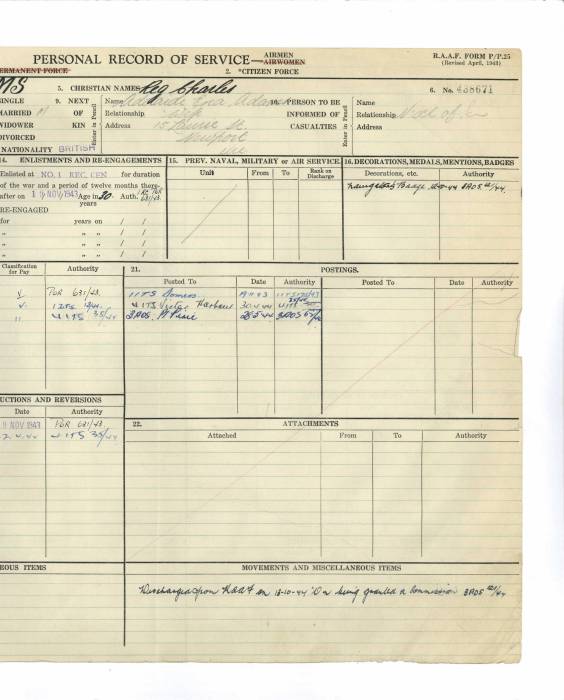 PERSONAL RECORD OF SERVICE—AIRMEN
AIRWOMEN
R.A.A.F. FORM P/P.25
(Revised April, 1943)
ERMANENT FORCE
2. *CITIZEN FORCE
MS
5. CHRISTIAN NAMES Reg Charles
6. No. 438671
SINGLE
MARRIED M
WIDOWER
DIVORCED
NATIONALITY BRITISH
9. NEXT OF KIN
Enter in Pencil
Name Adams
Relationship Wife
Address 15 St.
Newport
Vic
10. PERSON TO BE INFORMED OF CASUALTIES
Enter in Pencil
Name
Relationship
Address
14. ENLISTMENTS AND RE-ENGAGEMENTS
Enlisted at NO. 1 REC. CEN for duration
of the war and a period of twelve months there-
after on NOV 1943 Age in 20 years Auth. POR 631/43
RE-ENGAGED
for years on / /
" " / /
" " / /
" " / /
15. PREV. NAVAL, MILITARY or AIR SERVICE
Unit From To Rank on Discharge
16. DECORATIONS, MEDALS, MENTIONS, BADGES
Decorations, etc. Authority
Navigators Badge 3AOS /44
Classification for Pay Authority
V POR 631/43.
V. 1 ITS
" 4 ITS 35/44
21. POSTINGS.
Posted To Date Authority Posted To Date Authority
1 ITS Somers 19 11 43 1 ITS
4 ITS Victor Harbour 30.4.44 4 ITS
3 AOS. Pt Pirie 28 5 44 3 AOS
UCTIONS AND REVERSIONS
Date Authority
NOV 1943 POR 631/43.
4 ITS 35/44
22. ATTACHMENTS
Attached From To Authority
EOUS ITEMS
MOVEMENTS AND MISCELLANEOUS ITEMS
Discharged from RAAF on 12-10-44 On being granted a Commission 3AOS /44